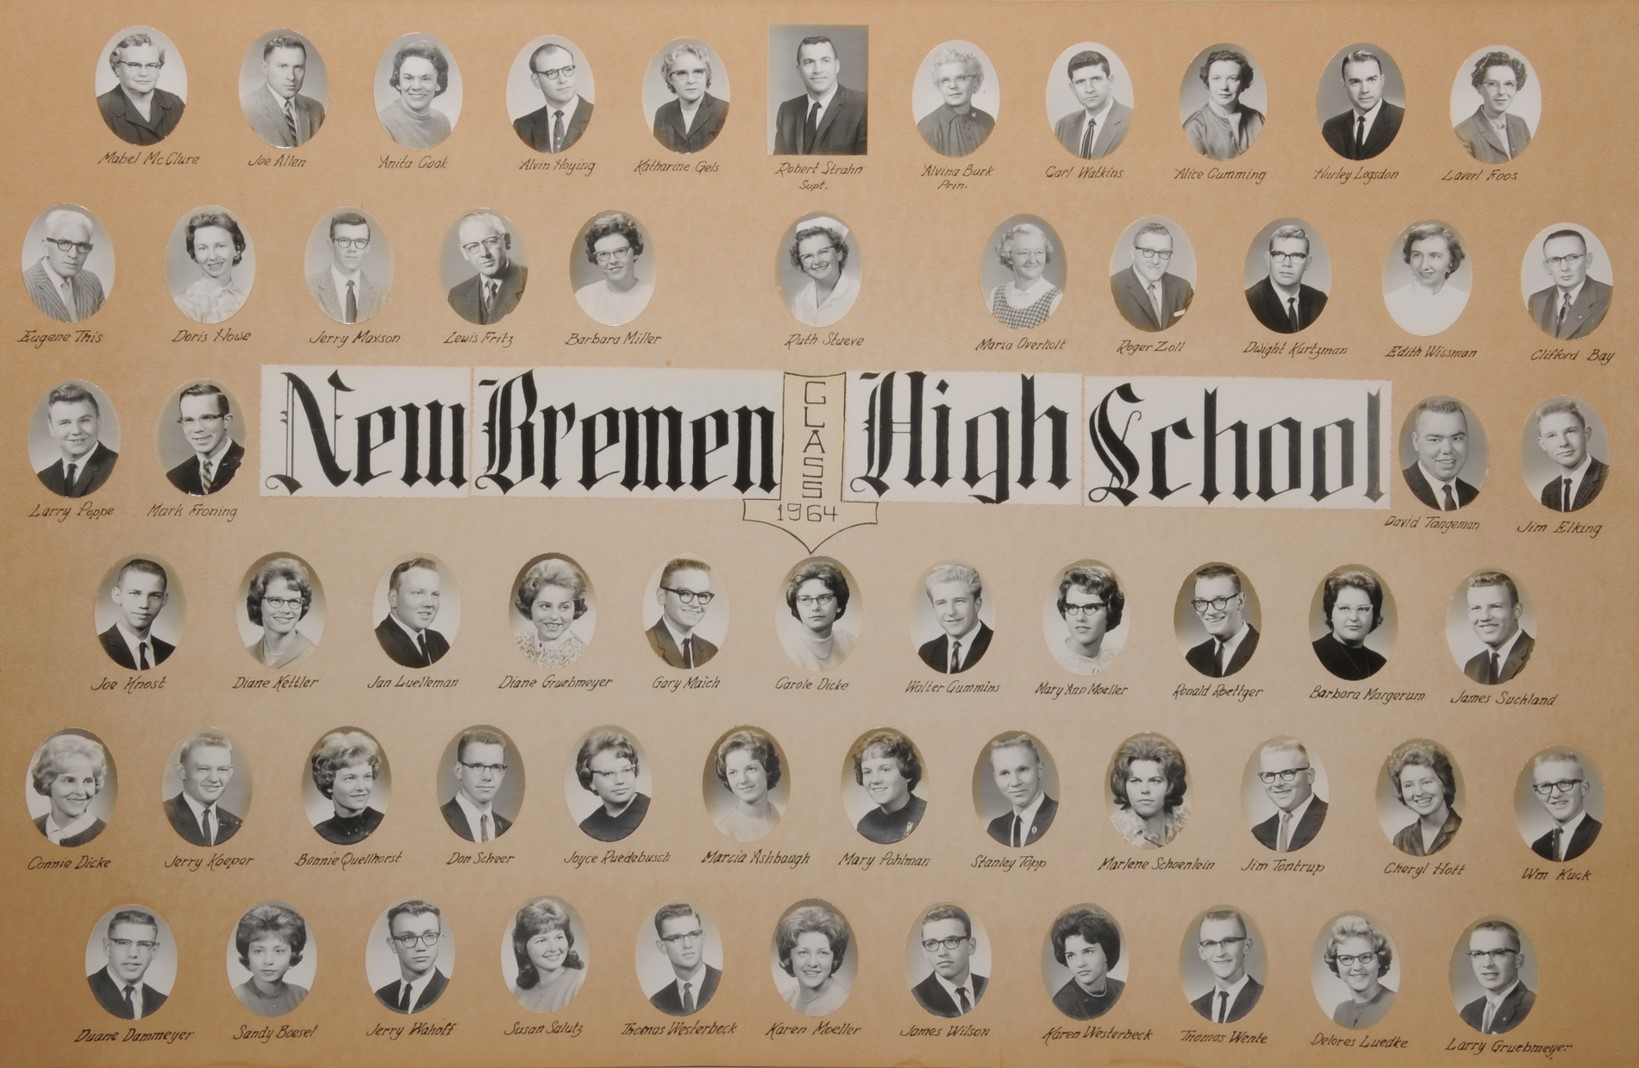 Mabel McClure
Joe Allen
Anita Cook
Alvin Hoying
Katharine Gels
Robert Strahn
Supt.
Alvina Burk
Prin.
Carl Watkins
Alice Cumming
Hurley Logsdon
Laverl Foos
Eugene This
Doris Howe
Jerry Maxson
Lewis Fritz
Barbara Miller
Ruth Stueve
Maria Overholt
Roger Zoll
Dwight Kurtzman
Edith Wissman
Clifford Bay
Larry Poppe
Mark Froning
New Bremen
CLASS
1964
High School
David Tangeman
Jim Elking
Joe Knost
Diane Kettler
Jan Luelleman
Diane Gruebmeyer
Gary Maich
Carole Dicke
Walter Gummins
Mary Ann Moeller
Ronald Roettger
Barbara Margerum
James Suchland
Connie Dicke
Jerry Koeper
Bonnie Quellhorst
Don Scheer
Joyce Ruedebusch
Marcia Ashbaugh
Mary Pohlman
Stanley Topp
Marlene Schoenlein
Jim Tontrup
Cheryl Hott
Wm Kuck
Duane Dammeyer
Sandy Boesel
Jerry Wahoff
Susan Salutz
Thomas Westerbeck
Karen Moeller
James Wilson
Karen Westerbeck
Thomas Wente
Delores Luedke
Larry Gruebmeyer